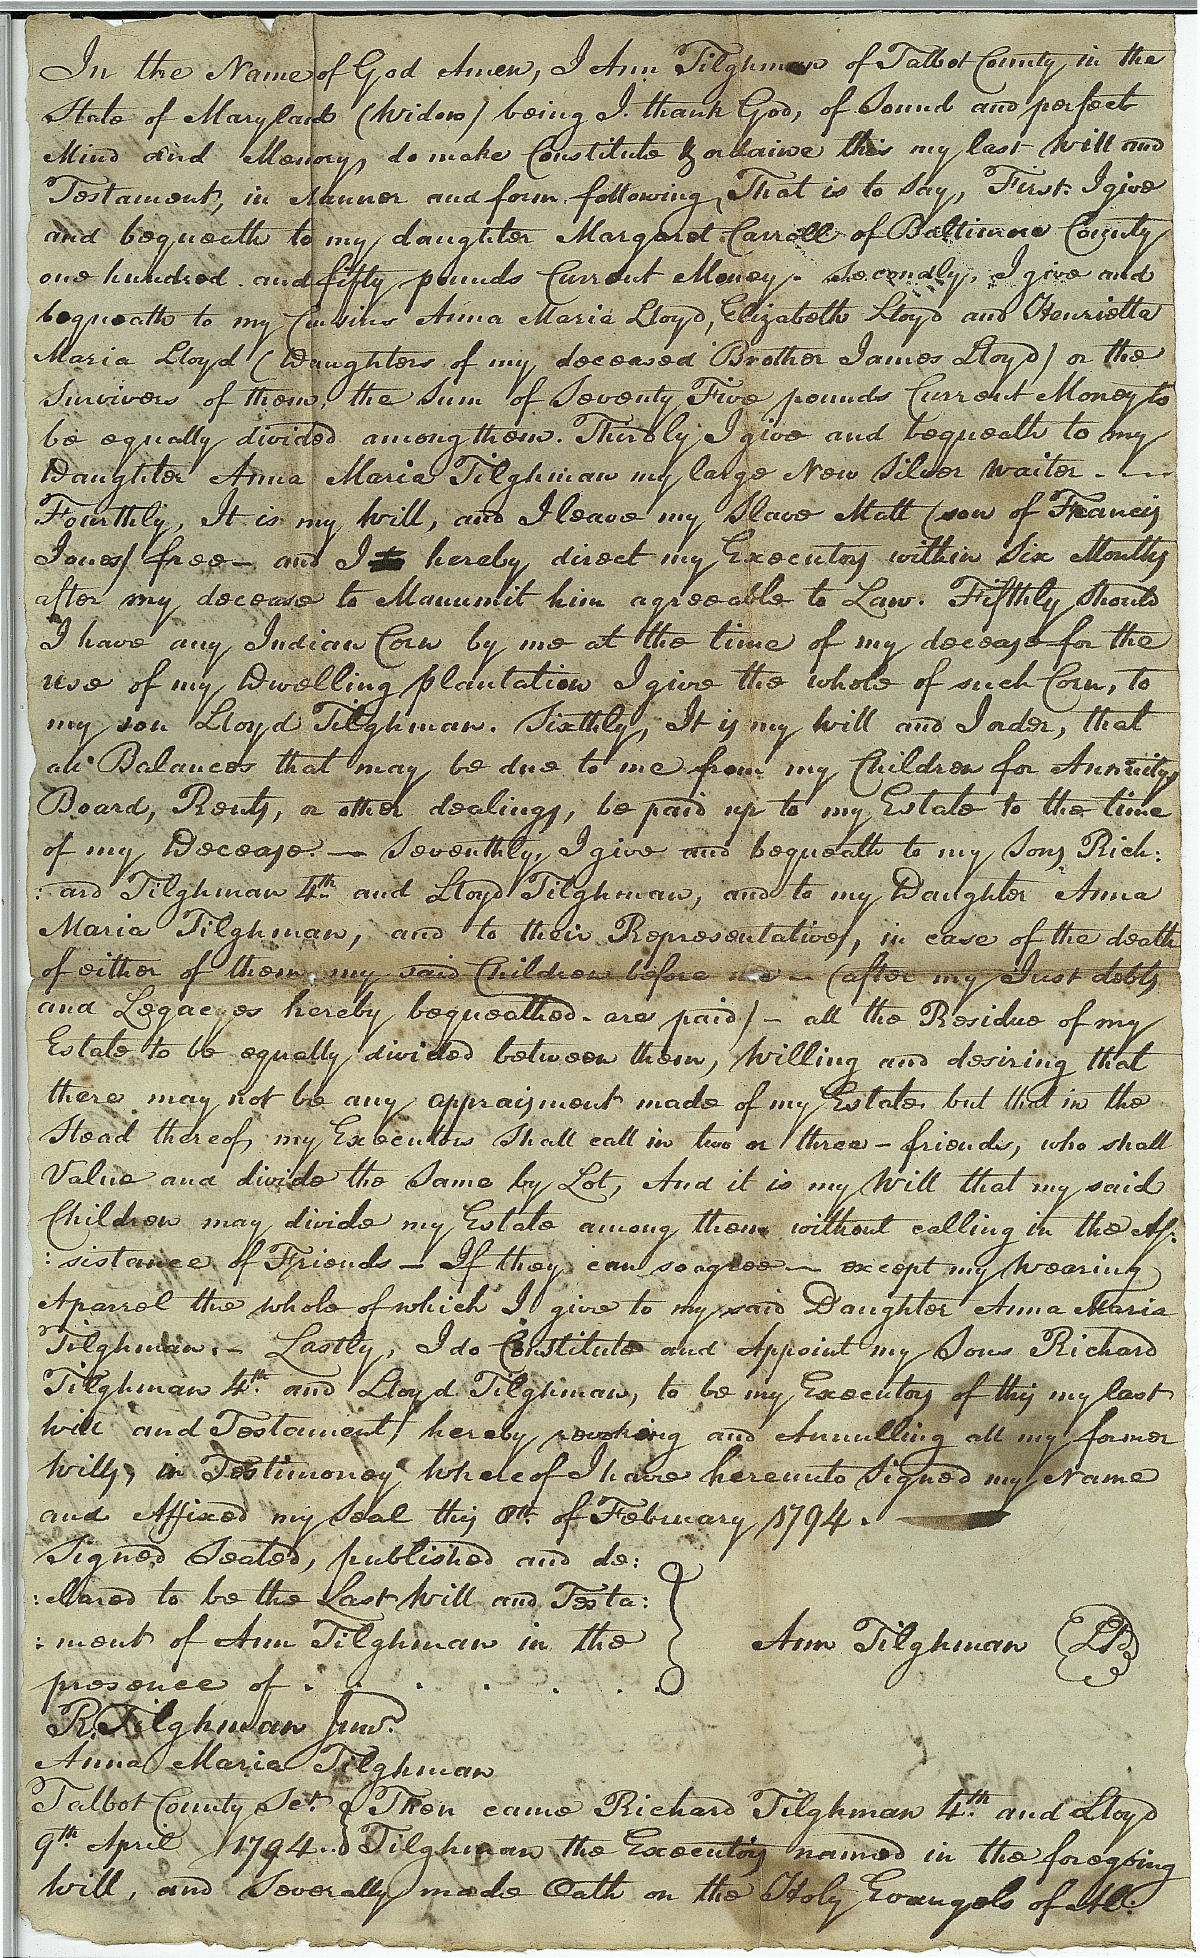 In the Name of God Amen, I Ann Tilghman of Talbot County in the
State of Maryland (Widow) being I thank God, of Sound and perfect
Mind and Memory, do make Constitute & ordaine this my last Will and
Testament, in Manner and form following, That is to say, First. I give
and bequeath to my daughter Margaret Carroll of Baltimore County
one hundred and fifty pounds Current Money. Secondly, I give and
bequeath to my Cousins Anna Maria Lloyd, Elizabeth Lloyd and Henrietta
Maria Lloyd (Daughters of my deceased Brother James Lloyd) or the
Survivers of them, the Sum of Seventy Five pounds Current Money to
be equally divided among them. Thirdly I give and bequeath to my
Daughter Anna Maria Tilghman my large New Silver Waiter - - -
Fourthly, It is my Will, and I leave my Slave Matt (son of Francis
Jones) free - and I hereby direct my Executors within Six Months
after my decease to Manumit him agreeable to Law. Fifthly Should
I have any Indian Corn by me at the time of my decease for the
use of my Dwelling plantation I give the whole of such Corn, to
my son Lloyd Tilghman. Sixthly, It is my Will and I order, that
all Balances that may be due to me from my Children for Annuitys
Board, Rents, or other dealings, be paid up to my Estate to the time
of my Decease. - Seventhly, I give and bequeath to my Sons Rich:
:ard Tilghman 4th and Lloyd Tilghman, and to my Daughter Anna
Maria Tilghman, and to their Representatives, in case of the death
of either of them my said Children before me - (after my Just debts
and Legacyes hereby bequeathed - are paid) - all the Residue of my
Estate to be equally divided between them, Willing and desiring that
there may not be any appraisment made of my Estate but that in the
Stead thereof, my Executors Shall call in two or three - friends, who shall
Value and divide the Same by Lot, And it is my Will that my said
Children may divide my Estate among them without calling in the As:
:sistance of Friends - If they can so agree - except my Wearing
Aparrel the whole of which I give to my said Daughter Anna Maria
Tilghman. - Lastly, I do Constitute and Appoint my Sons Richard
Tilghman 4th and Lloyd Tilghman, to be my Executors of this my last
Will and Testament, hereby revoking and Annulling all my former
Wills, in Testimoney whereof I have hereunto Signed my Name
and Affixed my Seal this 8th of February 1794.
Signed Sealed, published and de:
:clared to be the Last Will and Testa:
:ment of Ann Tilghman in the
presence of . . . . . .
Ann Tilghman
R. Tilghman Junr.
Anna Maria Tilghman
Talbot County Sct. } Then came Richard Tilghman 4th and Lloyd
9th April 1794. } Tilghman the Executors named in the foregoing
Will, and Severally made Oath on the Holy Evangels of Al: